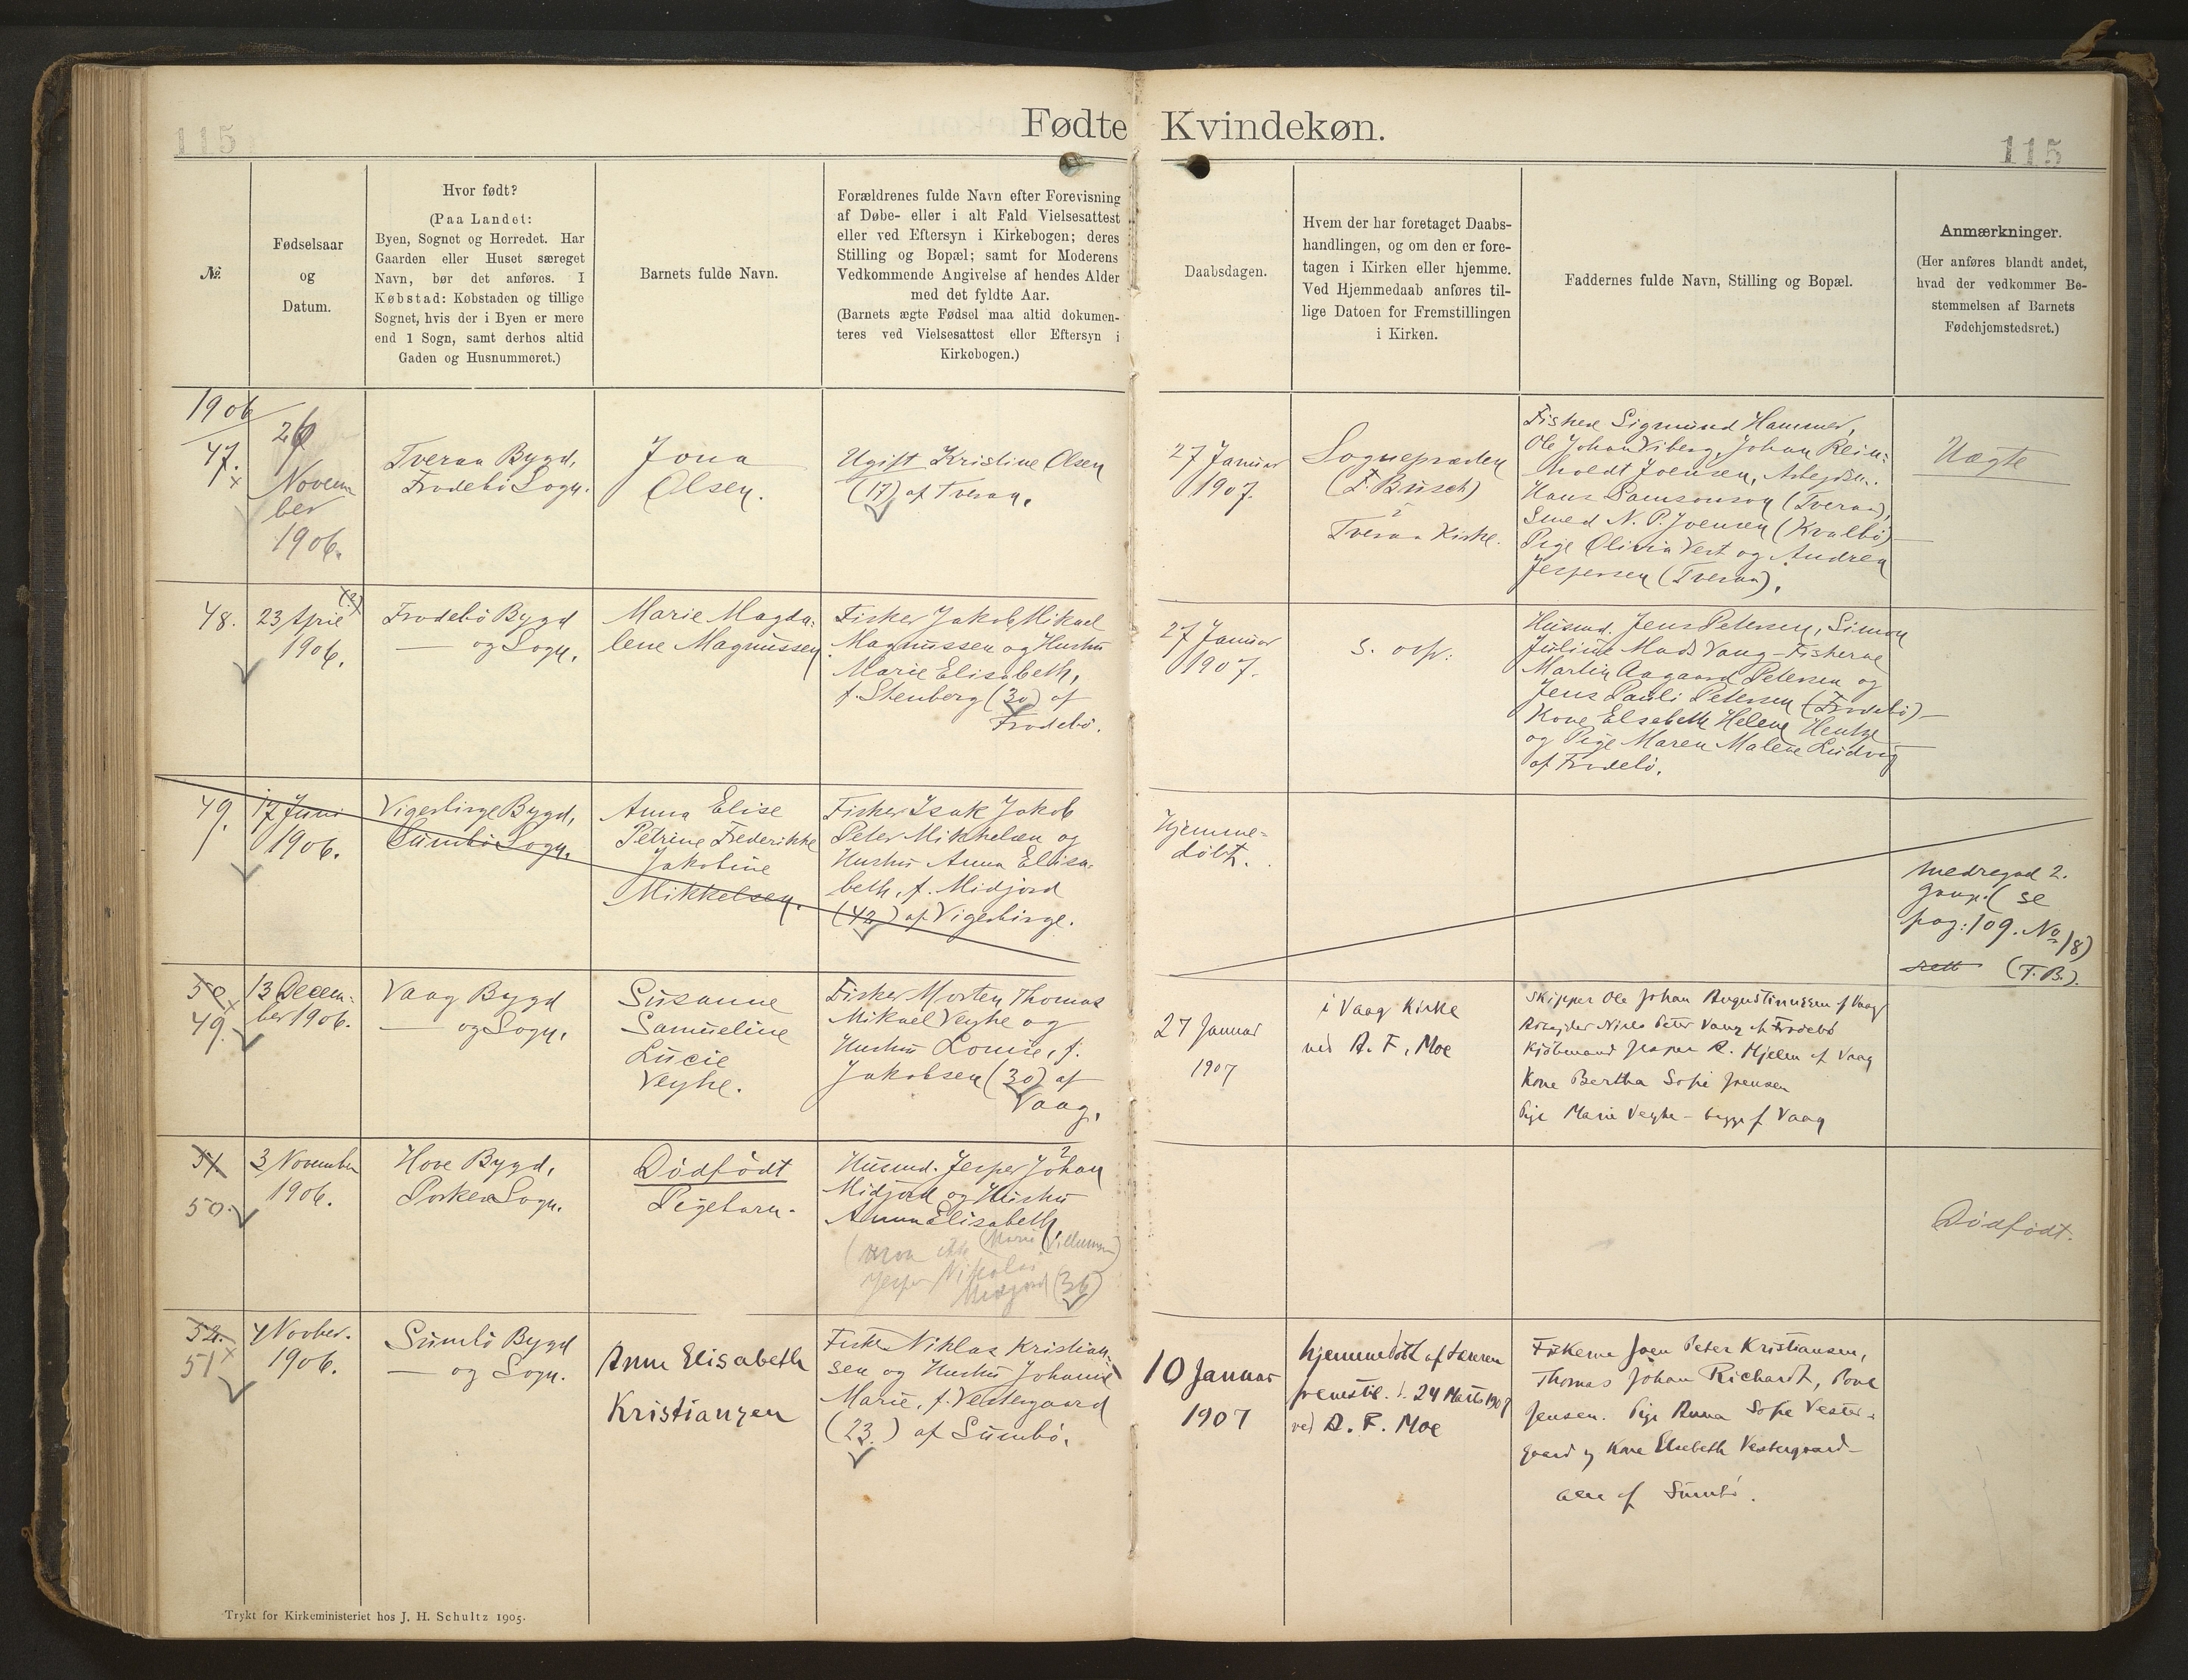 115
Fødte Kvindekøn.
115
№.
Fødselsaar
og
Datum.
Hvor født?
(Paa Landet:
Byen, Sognet og Herredet. Har
Gaarden eller Huset særeget
Navn, bør det anføres. I
Købstad: Købstaden og tillige
Sognet, hvis der i Byen er mere
end 1 Sogn, samt derhos altid
Gaden og Husnummeret.)
Barnets fulde Navn.
Forældrenes fulde Navn efter Forevisning
af Døbe- eller i alt Fald Vielsesattest
eller ved Eftersyn i Kirkebogen; deres
Stilling og Bopæl; samt for Moderens
Vedkommende Angivelse af hendes Alder
med det fyldte Aar.
(Barnets ægte Fødsel maa altid dokumen-
teres ved Vielsesattest eller Eftersyn i
Kirkebogen.)
Daabsdagen.
Hvem der har foretaget Daabs-
handlingen, og om den er fore-
tagen i Kirken eller hjemme.
Ved Hjemmedaab anføres til-
lige Datoen for Fremstillingen
i Kirken.
Faddernes fulde Navn, Stilling og Bopæl.
Anmærkninger.
(Her anføres blandt andet,
hvad der vedkommer Be-
stemmelsen af Barnets
Fødehjemstedsret.)
1906
47.
26
Novem
ber
1906.
Tveraa Bygd,
Frodebö Sogn.
Jona
Olsen.
Ugift Kristine Olsen
(17) af Tveraa.
27 Januar
1907.
Sognepræsten
(F. Busch)
i
Tveraa Kirke.
Fiskere Sigmund Hammer,
Ole Johan Viberg, Johan Rein-
holdt Joensen, Arbejdsm.
Hans Samsonson (Tveraa),
Smed N. P. Joensen (Kvalbö)
Pige Olivia Vest og Andrea
Jespersen (Tveraa).
Uægte
48.
23 April (?)
1906.
Frodebö Bygd
— og Sogn.
Marie Magda-
lene Magnussen
Fisker Jakob Mikael
Magnussen og Hustru
Marie Elisabeth,
f. Stenberg (30) af
Frodebö.
27 Januar
1907.
s. ovf.
Husmd. Jens Petersen, Simon
Juline Mads Vaag - Fiskerne
Martin Aagaard Petersen og
Jens Pauli Petersen (Frodebö) —
Kone Elsebeth Helene Hentze
og Pige Maren Malene Ludvig
af Frodebö.
49.
17 Juni
1906.
Vigerbirge Bygd,
Sumbö Sogn.
Anna Elise
Petrine Frederikke
Jakobine
Mikkelsen.
Fisker Isak Jakob
Peter Mikkelsen og
Hustru Anna Elisa-
beth, f. Midjord
(42) af Vigerbirge.
Hjemme-
döbt.
medregnet 2.
Gang (se
pag: 109. No 18)
(F.B.).
50
49.
13 Decem-
ber 1906.
Vaag Bygd
— og Sogn.
Susanne
Samueline
Lucie
Veyhe.
Fisker Morten Thomas
Mikael Veyhe og
Hustru Louise, f.
Jakobsen (30) af
Vaag.
27 Januar
1907
i Vaag Kirke
ved A. F. Moe
Skipper Ole Johan Augustinussen af Vaag
Arbejder Niels Peter Vang af Frodebö
Kjöbmand Jesper R. Hjelm af Vaag
Kone Bertha Sofie Joensen
Pige Marie Veyhe - begge af Vaag
51
50.
3 November
1906.
Hove Bygd,
Porkeri Sogn.
Dödfödt
Pigebarn.
Husmd. Jesper Johan
Midjord og Hustru
Anna Elisabeth
(Marie Villumsen)
Jesper Nikolai
Midjord (36)
Dödfödt.
52.
51
4 Novber.
1906.
Sumbö Bygd
— og Sogn.
Anna Elisabeth
Kristiansen
Fisker Niklas Kristian-
sen og Hustru Johanne
Marie, f. Vestergaard
(23.) af Sumbö.
10 Januar
1907
hjemmedöbt af Læreren
fremstil. d. 24 Marts 1907
ved A. F. Moe
Fiskerne Joen Peter Kristiansen,
Thomas Johan Richardt, Poul
Jensen. Pige Anna Sofie Vester-
gaard og Kone Elsebeth Vestergaard -
alle af Sumbö.
Trykt for Kirkeministeriet hos J. H. Schultz 1905.